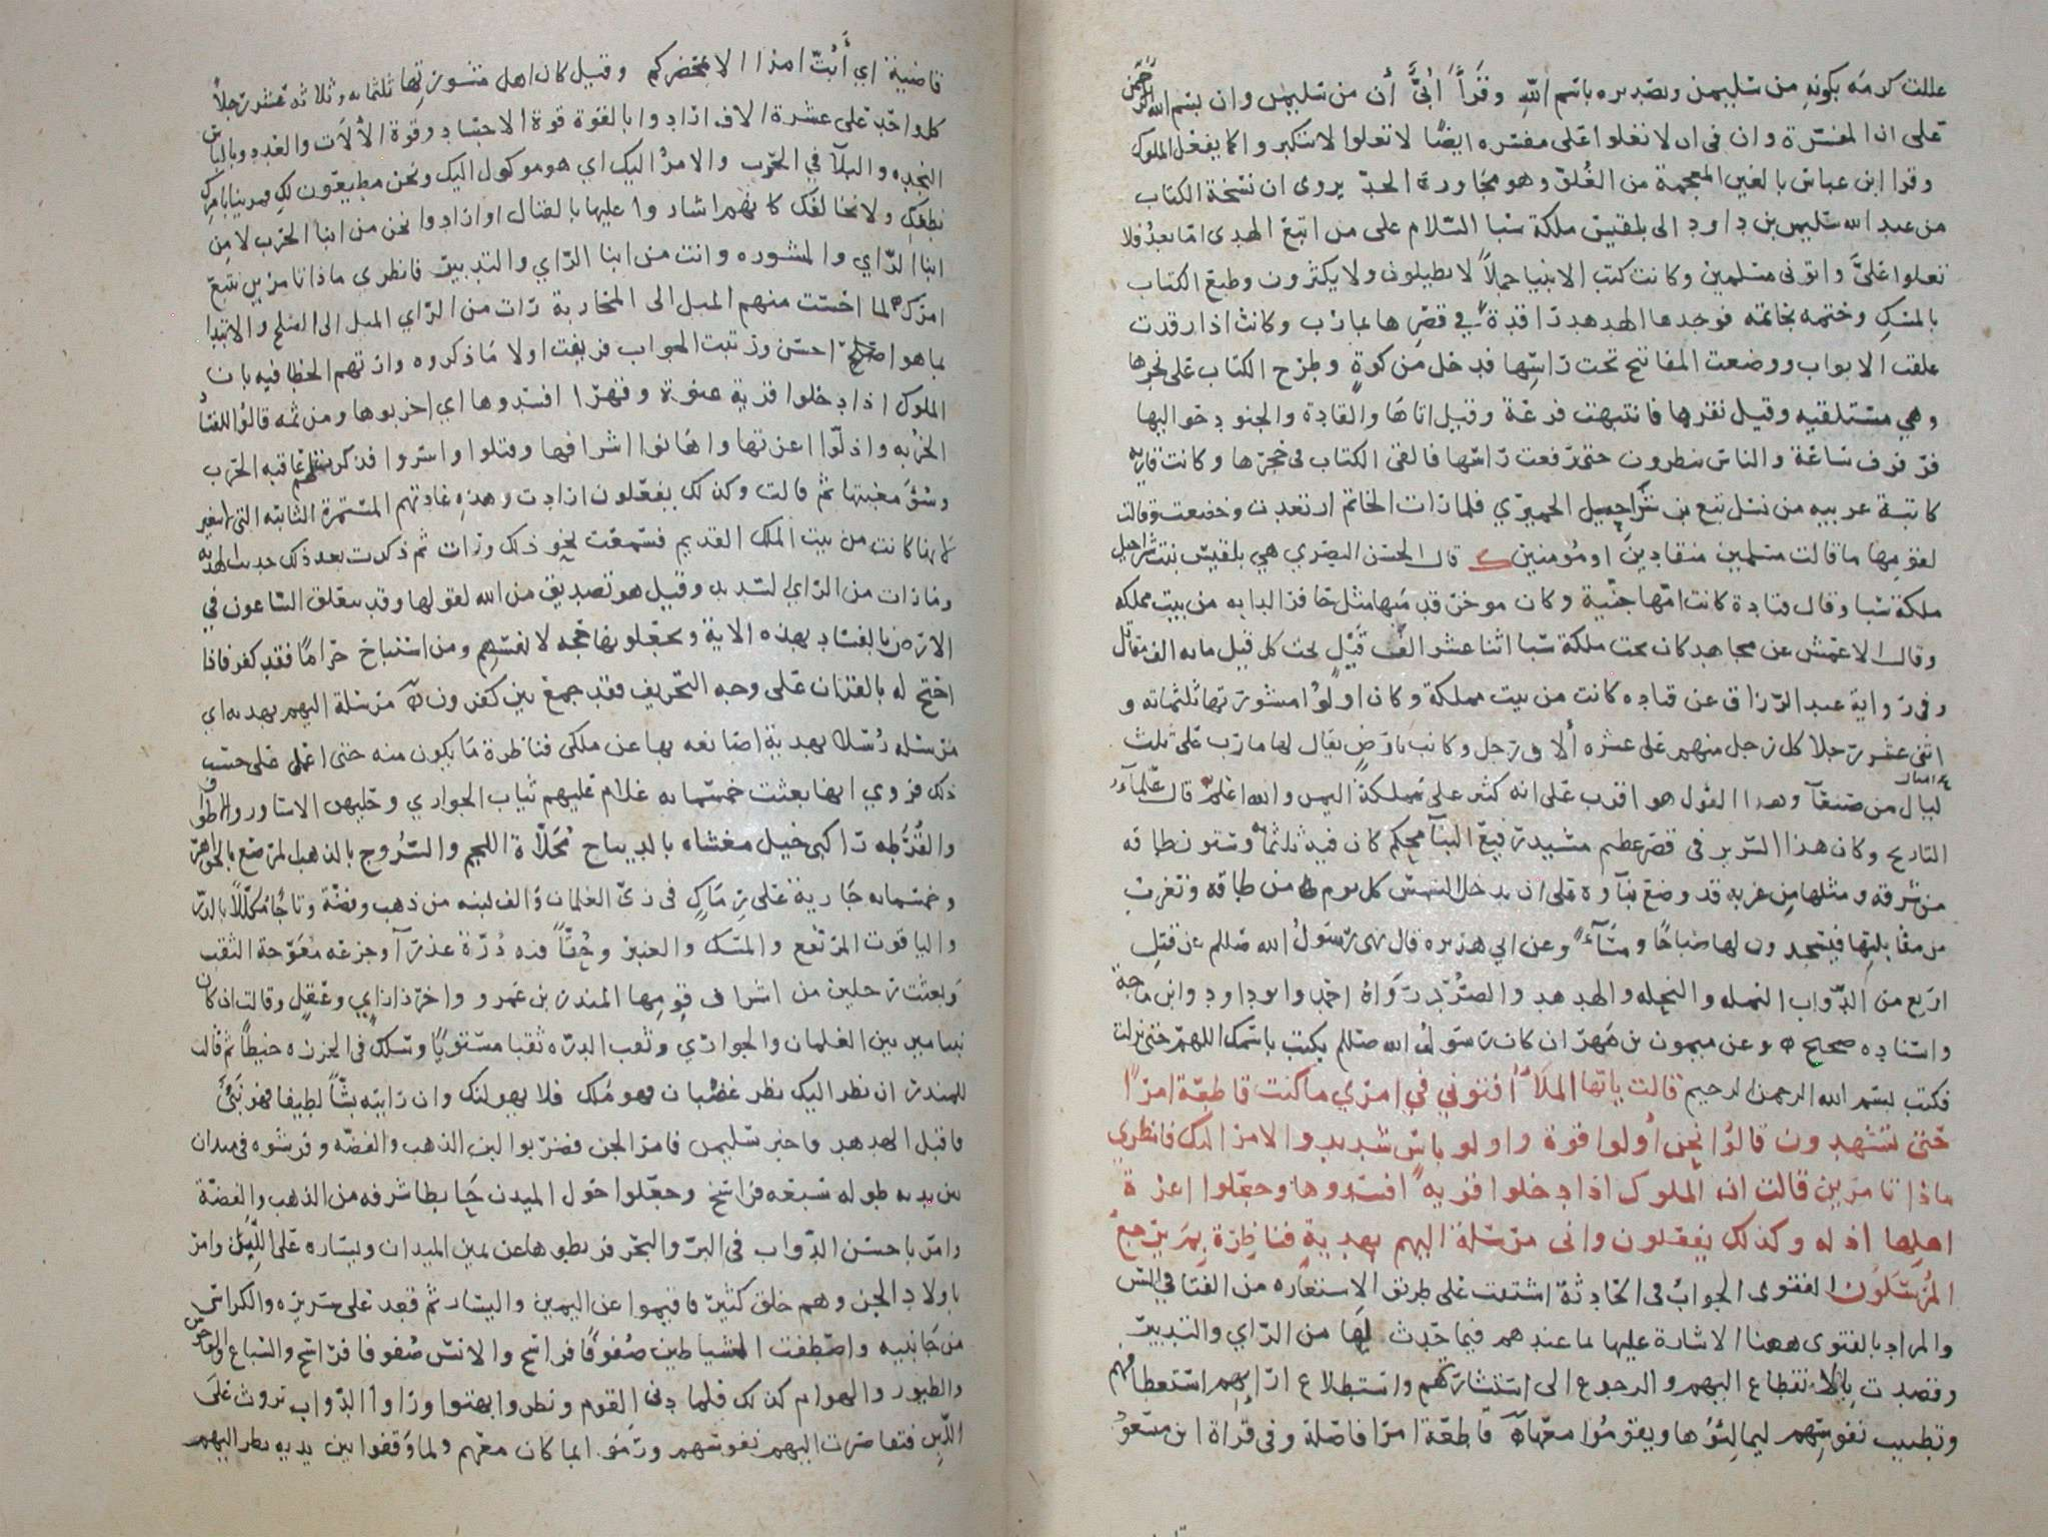 عللت كرمه بكونه من سليمن وتصديره باسم الله وقرأ أبىّ أن من سليمن وان بسم الله الرحمن
على ان المفسرة وان فى ان لا تعلوا على مفسره ايضا لا تعلوا لا تتكبروا كما يفعل الملوك
وقرا ابن عباس بالغين المعجمة من الغلو وهو مجاورة الحد يروى ان نسخة الكتاب
من عبد الله سليمن بن داود الى بلقيس ملكة سبا السلام على من اتبع الهدى اما بعد فلا
تعلوا علىّ واتونى مسلمين وكانت كتب الانبيا جملاً لا يطيلون ولا يكثرون وطبع الكتاب
بالمسك وختمه بخاتمه فوجدها الهدهد راقدة في قصرها بمارب وكانت اذا رقدت
غلقت الابواب ووضعت المفاتيح تحت راسها فدخل من كوةٍ وطرح الكتاب على نحرها
وهي مستلقيه وقيل نقرها فانتبهت فزعة وقيل اتاها والقادة والجنود حواليها
فرفرف ساعة والناس ينظرون حتى رفعت راسها فالقى الكتاب فى حجرها وكانت قاريه
كاتبة عربيه من نسل تبع بن شراحيل الحميري فلما رات الخاتم ارتعدت وخضعت وقالت
لقومها ما قالت مسلمين منقادين او مومنين قال الحسن البصري هي بلقيس بنت شراحيل
ملكة سبا وقال قتادة كانت امها جنية وكان موخر قدميها مثل حافر الدابه من بيت مملكه
وقال الاعمش عن مجاهد كان تحت ملكة سبا اثنا عشر الف قَيْلٍ تحت كل قيل مايه الف مقاتل
وفى رواية عبد الرزاق عن قتاده كانت من بيت مملكة وكان اولوا مشورتها ثلثمائه و
اثنى عشر رجلا كل رجل منهم على عشره ألاف رجل وكانت بارض يقال لها مارب على ثلث
ليال من صنعآ وهذا القول هو اقرب على انه كثير على مملكة اليمن والله اعلم قال علمآء
التاريخ وكان هذا السرير فى قصر عظيم مشيد رفيع البنآ محكم كان فيه ثلثمايه وستو نطاقه
من شرقه ومثلها من غربه قد وضع بنآوه على ان يدخل الشمس كل يوم من طاقه وتغرب
من مقابلتها فيسجدون لها صباحًا ومسآءً وعن ابي هريره قال نهى رسول الله صللم عن قتل
اربع من الدواب النمله والنحله والهدهد والصُّرَد رواه احمد وابو داود وابن ماجة
واسناده صحيح وعن ميمون بن مهران كان رسول الله صللم يكتب باسمك اللهم حتى نزلت
فكتب بسم الله الرحمن الرحيم قالت ياتها الملأ افتوني في امري ما كنت قاطعة امرًا
حتى تشهدون قالوا نحن أولوا قوة واولو باس شديد والامر اليك فانظري
ماذا تامرين قالت ان الملوك اذا دخلوا قريه افسدوها وجعلوا اعزة
اهلها اذله وكذلك يفعلون وانى مرسلة اليهم بهدية فناظرة بم يرجع
المرسلون الفتوى الجواب فى الحادثة اشتقت على طريق الاستعاره من الفتا في السن
والمراد بالفتوى ههنا الاشارة عليها بما عندهم فيما حدث لها من الراي والتدبير
وقصدت بالانقطاع اليهم والرجوع الى استشارتهم واستطلاع ارائهم استعطافهم
وتطييب نفوسهم ليمالئوها ويقوموا معها قاطعة امرًا فاصلة وفى قراة ابن مسعود
قاضية اي أَبُتّ امرا الا بمحضركم وقيل كان اهل مشورتها ثلثمايه وثلاثه عشر رجلاً
كل واحد على عشرة الاف ارادوا بالقوة قوة الاجساد وقوة الألات والعدد وبالباس
النجده والبلآ في الحرب والامر اليك اي هو موكول اليك ونحن مطيعون لك فمرينا بامرك
نطعك ولا نخالفك كانهم اشاروا عليها بالقتال او ارادوا نحن من ابنا الحرب لا من
ابنا الراي والمشوره وانت من ابنا الراي والتدبير فانظري ماذا تامرين نتبع
امرك لما احست منهم الميل الى المحاربة رات من الراي الميل الى الصلح والابتدا
بما هو احسن ورتبت الجواب فزيفت اولا ما ذكروه وارتهم الخطا فيه بان
الملوك اذا دخلوا قرية عنوة وقهرًا افسدوها اي اخربوها ومن ثمه قالوا للفساد
الخربه واذلّوا اعزتها واهانوا اشرافها وقتلوا واسروا فذكرت لهم عاقبه الحرب
وسوَ مغبتها ثم قالت وكذلك يفعلون ارادت وهذه عادتهم المستمرة الثابته التى لا تتغير
لانها كانت من بيت الملك القديم فسمعت نحو ذلك ورات ثم ذكرت بعد ذلك حديث الهديه
وما رات من الراي السديد وقيل هو تصديق من الله لقولها وقد يتعلق الساعون في
الارض بالفساد بهذه الاية ويجعلونها حجه لانفسهم ومن استباح حرامًا فقد كفر فاذا
احتج له بالقران على وجه التحريف فقد جمع بين كفرين مرسلة اليهم بهديه اي
مرسله رسلا بهدية اصانعه بها عن ملكى فناظرة ما يكون منه حتى اعمل على حسب
ذلك فروي انها بعثت خمسمايه غلام عليهم ثياب الجواري وحليهن الاساور والاطواق
والقرطه راكبى خيل مغشاه بالديباج محلاة اللجم والسروج بالذهب المرصع بالجواهر
وخمسمايه جارية على رماكٍ فى زىّ الغلمان والف لبنه من ذهب وفضة وتاجًا مكللاً بالدر
والياقوت المرتفع والمسك والعنبر وحُقّاً فيه دُرّة عذرآ وجزعه معوجة الثقب
وبعثت رجلين من اشراف قومها المنذر بن عمرو واخر ذا رايٍ وعقلٍ وقالت ان كان
نبيا ميز بين الغلمان والجواري وثقب الدره ثقبا مستويًا وسلك فى الخرزه خيطًا ثم قالت
للمنذر ان نظر اليك نظر غضبان فهو ملك فلا يهولنك وان رايته بشّاً لطيفا فهو نَبيٌّ
فاقبل الهدهد فاخبر سليمن فامر الجن فضربوا لبن الذهب والفضه وفرشوه فى ميدان
بين يديه طوله سبعه فراسخ وجعلوا حول الميدن حايطا شرفه من الذهب والفضة
وامر باحسن الدواب فى البر والبحر فربطوها عن يمين الميدان ويساره على اللبن وامر
باولاد الجن وهم خلق كثير فاقيموا عن اليمين واليسار ثم قعد على سريره والكراسى
من جانبيه واصطفت الشياطين صفوفًا فراسخ والانس صفوفا فراسخ والسباع والوحوش
والطيور والهوام كذلك فلما دنى القوم ونظروا بهتوا وراوا الدواب تروث على
اللبن فتقاصرت اليهم نفوسهم ورموا بما كان معهم ولما وقفوا بين يديه نظر اليهم